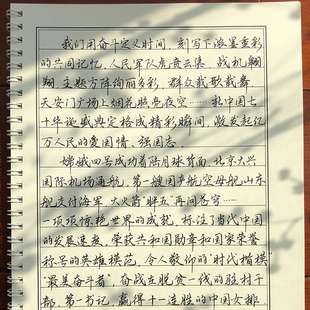 我们用奋斗定义时间，刻写下浓墨重彩
的共同记忆，人民军队虎贲云集，战机翱
翔，主题方阵绚丽多彩，群众载歌载舞
天安门广场上烟花照亮夜空……新中国七
十华诞盛典定格成精彩瞬间，激发起亿
万人民的爱国情、强国志。
嫦娥四号成功着陆月球背面，北京大兴
国际机场通航，第一艘国产航空母舰山东
舰交付海军，大火箭"胖五"再问苍穹……
一项项惊艳世界的成就，标注了当代中国
的发展速度。荣获共和国勋章和国家荣誉
称号的英雄模范，令人敬仰的"时代楷模"
"最美奋斗者"，奋战在脱贫一线的驻村干
部、第一书记，赢得十一连胜的中国女排